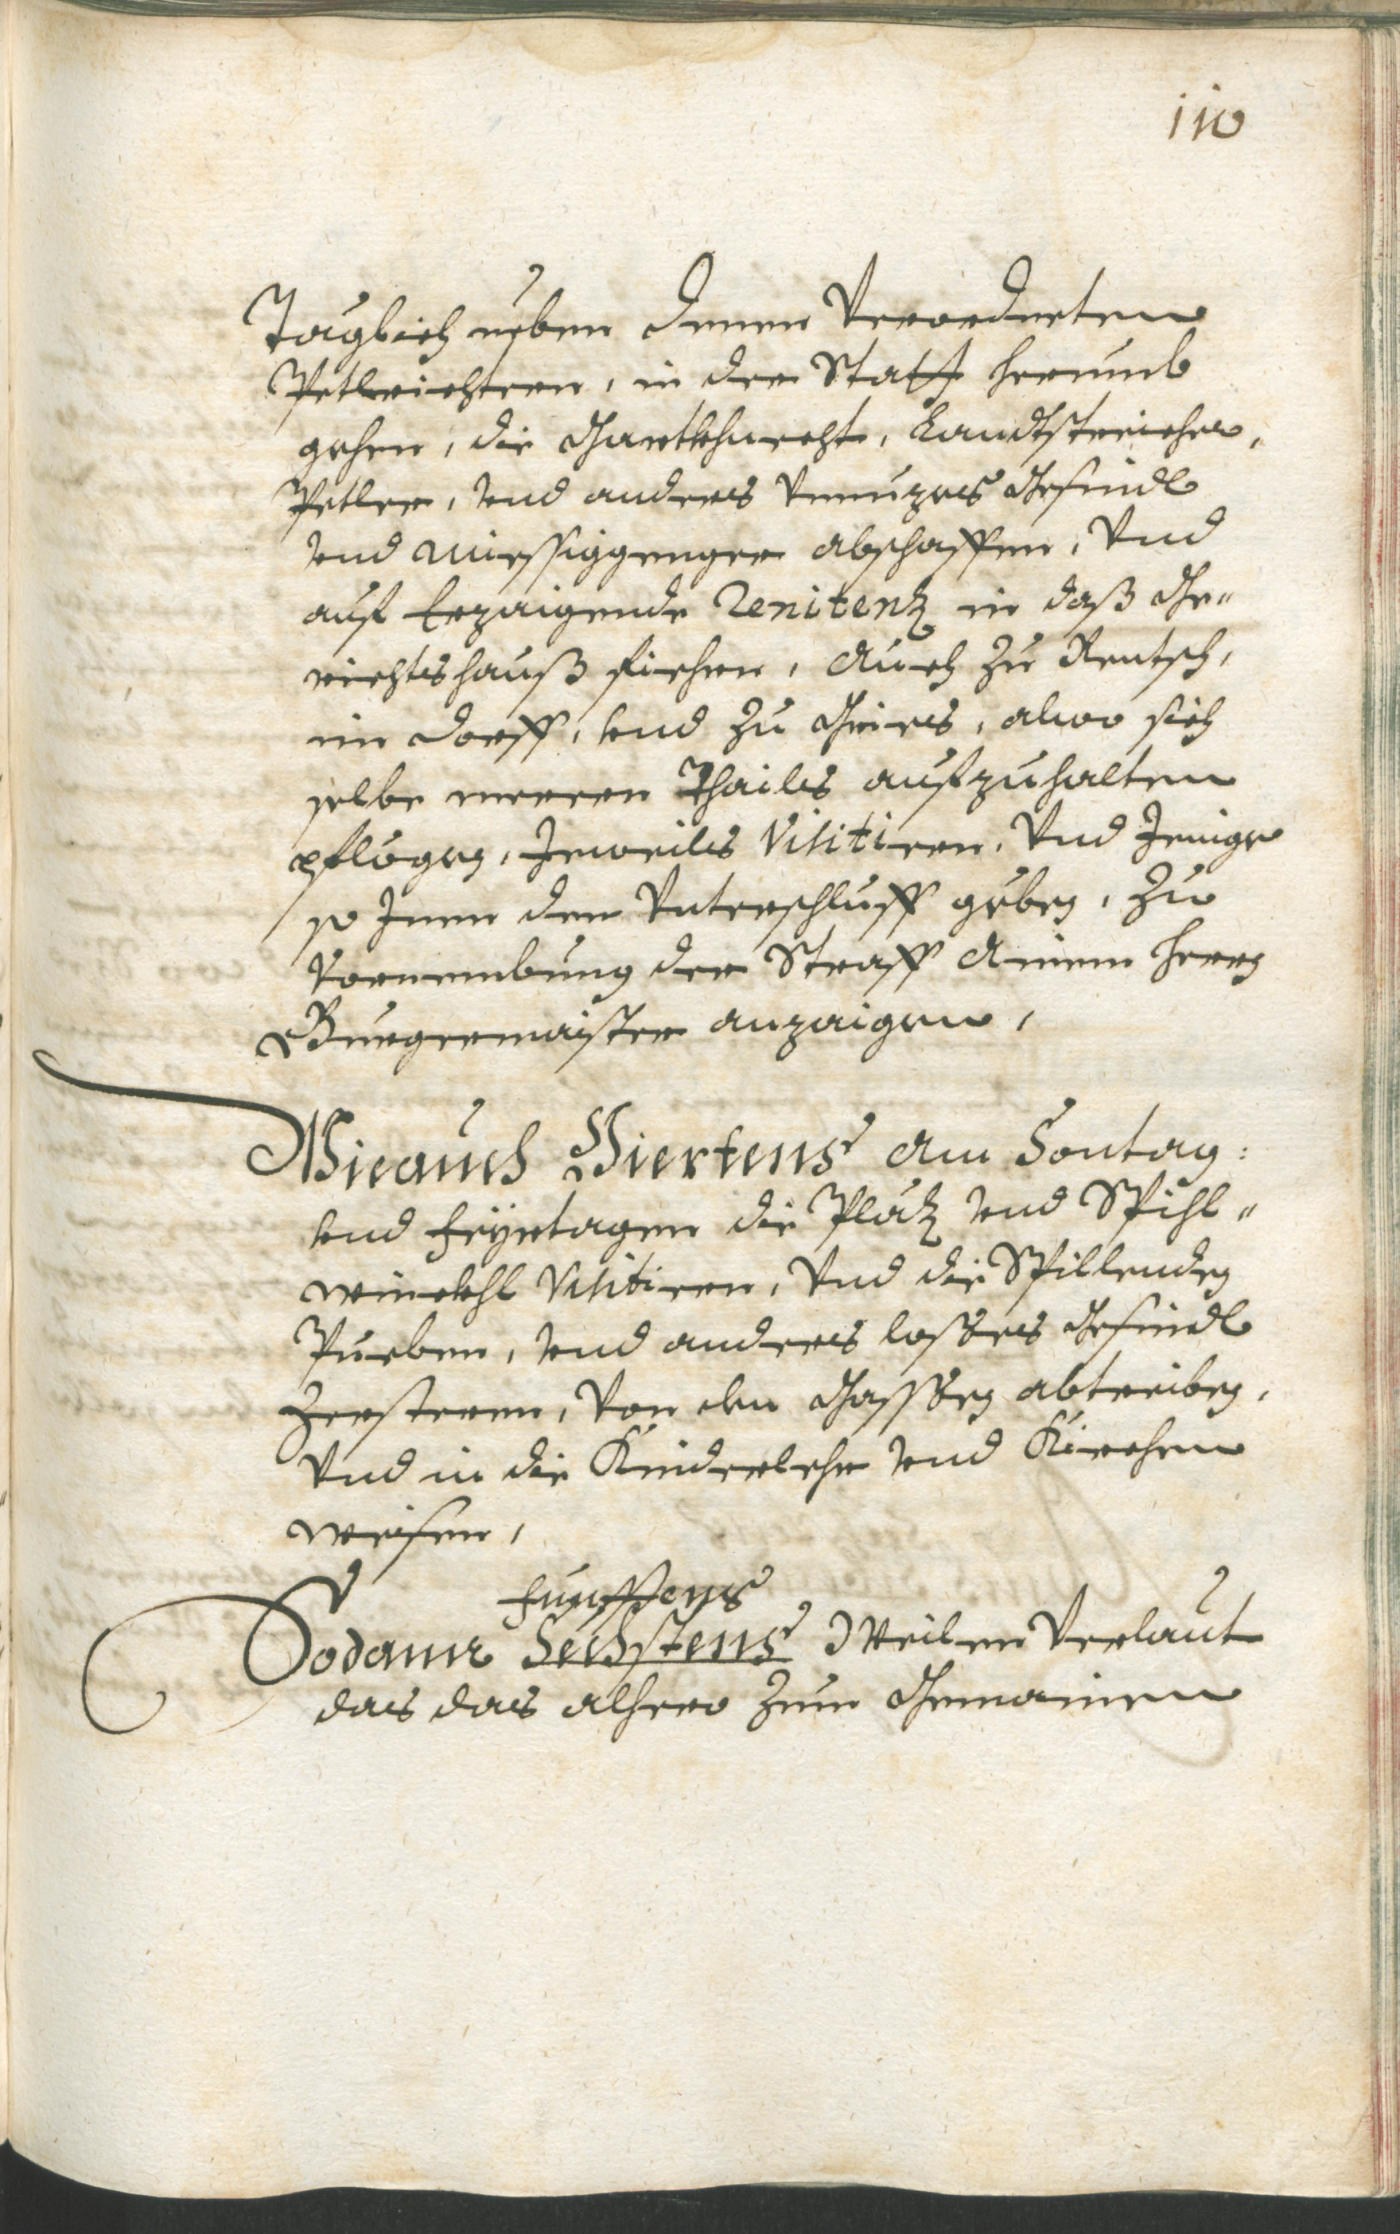 110
Täglich neben denen Verordneten
Petlrichtern, in der Statt herumb
gehen, die Gartkhnecht, Landtstreicher,
Petler, und anders Unnuzes Gesindl
und Miessiggenger abschaffen, Und
auf Erzaigende Renitenz in daß Ge„
richtshauß fiehren, Auch zu Rentsch,
im Dorff, und zu Gries, alwo sich
selbe mereren Thails aufzuhalten
pflegen, Jeweils Visitiren, Und Jenige
so Jnen den Unterschluff geben, zu
Vornembung der Straff Ainem Herrn
Burgermaister anzaigen,
Wie auch Viertens am Sontag:
und Feyrtagen die Pläz und Spihl„
winckhl Visitiren, Und die Spillenden
Pueben, und anders loßes Gesindl
Zerstreren, Von den Gassen abtreiben,
Und in die Kinderlehr und Kirchen
weisen,
Funfftens
Sodann Sechstens Weilen Verlaut
das das alhero zum Gemainen